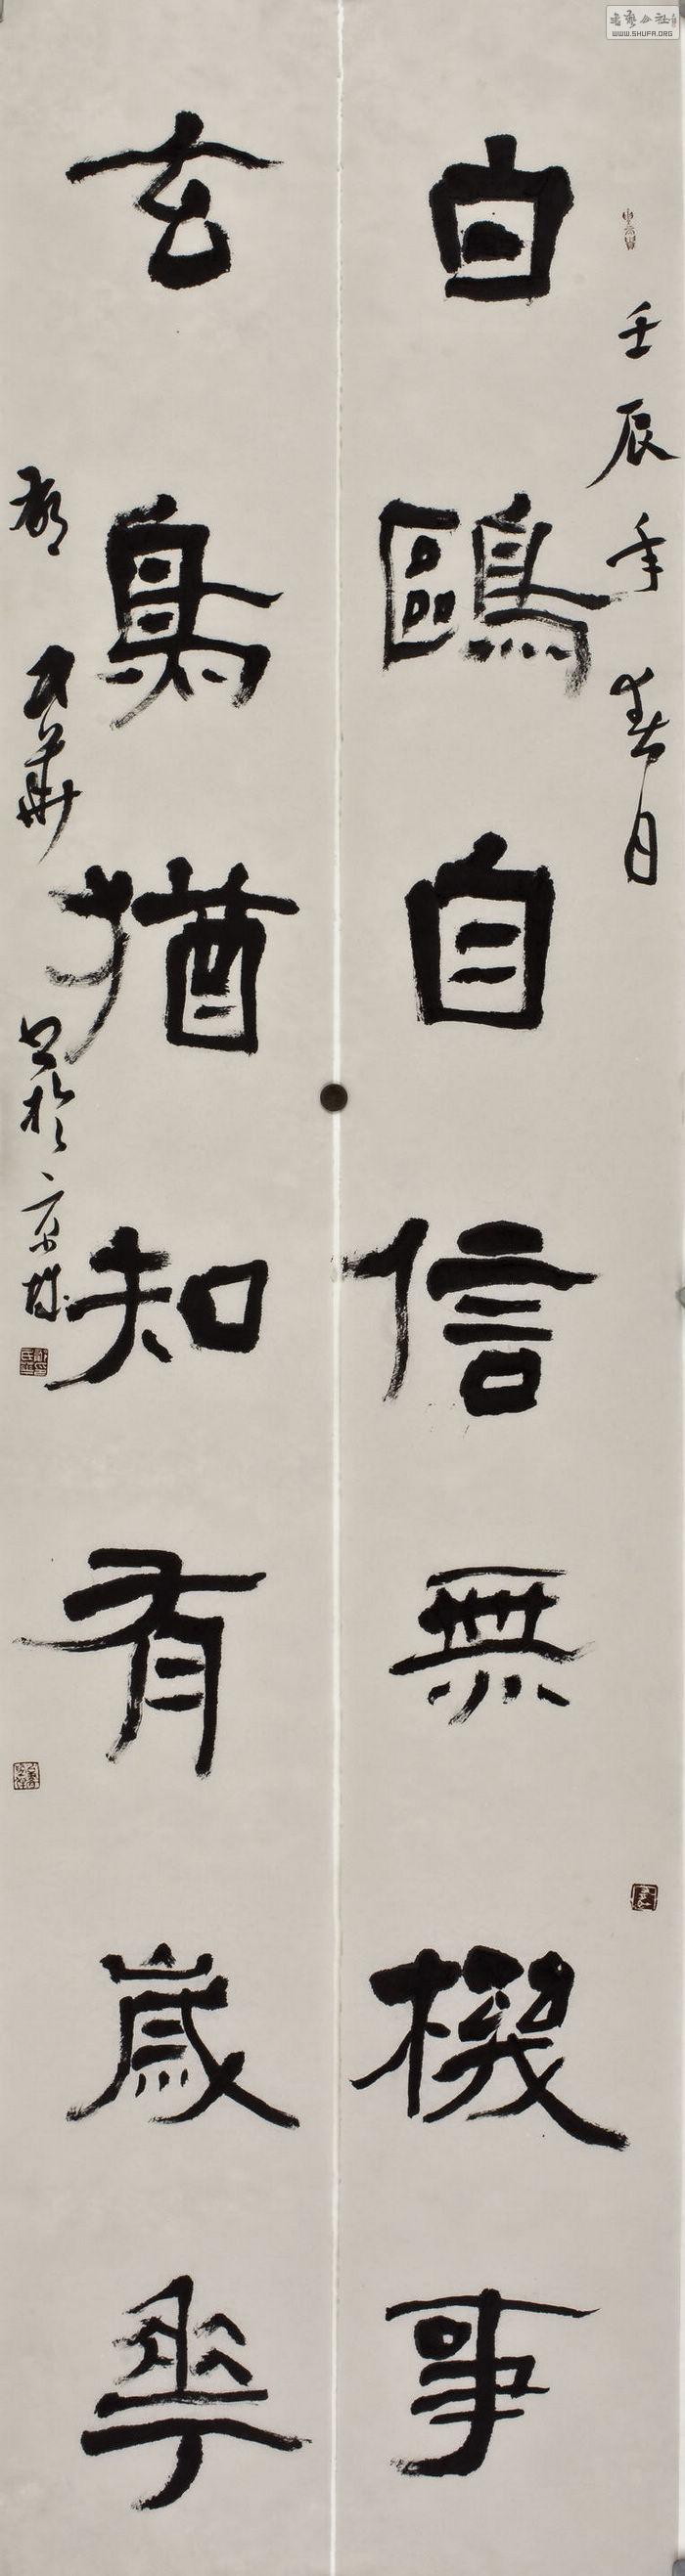 壬辰年春月
白鷗自信無機事
玄鳥猶知有歲華
華
書於京城
书艺公社
WWW.SHUFA.ORG